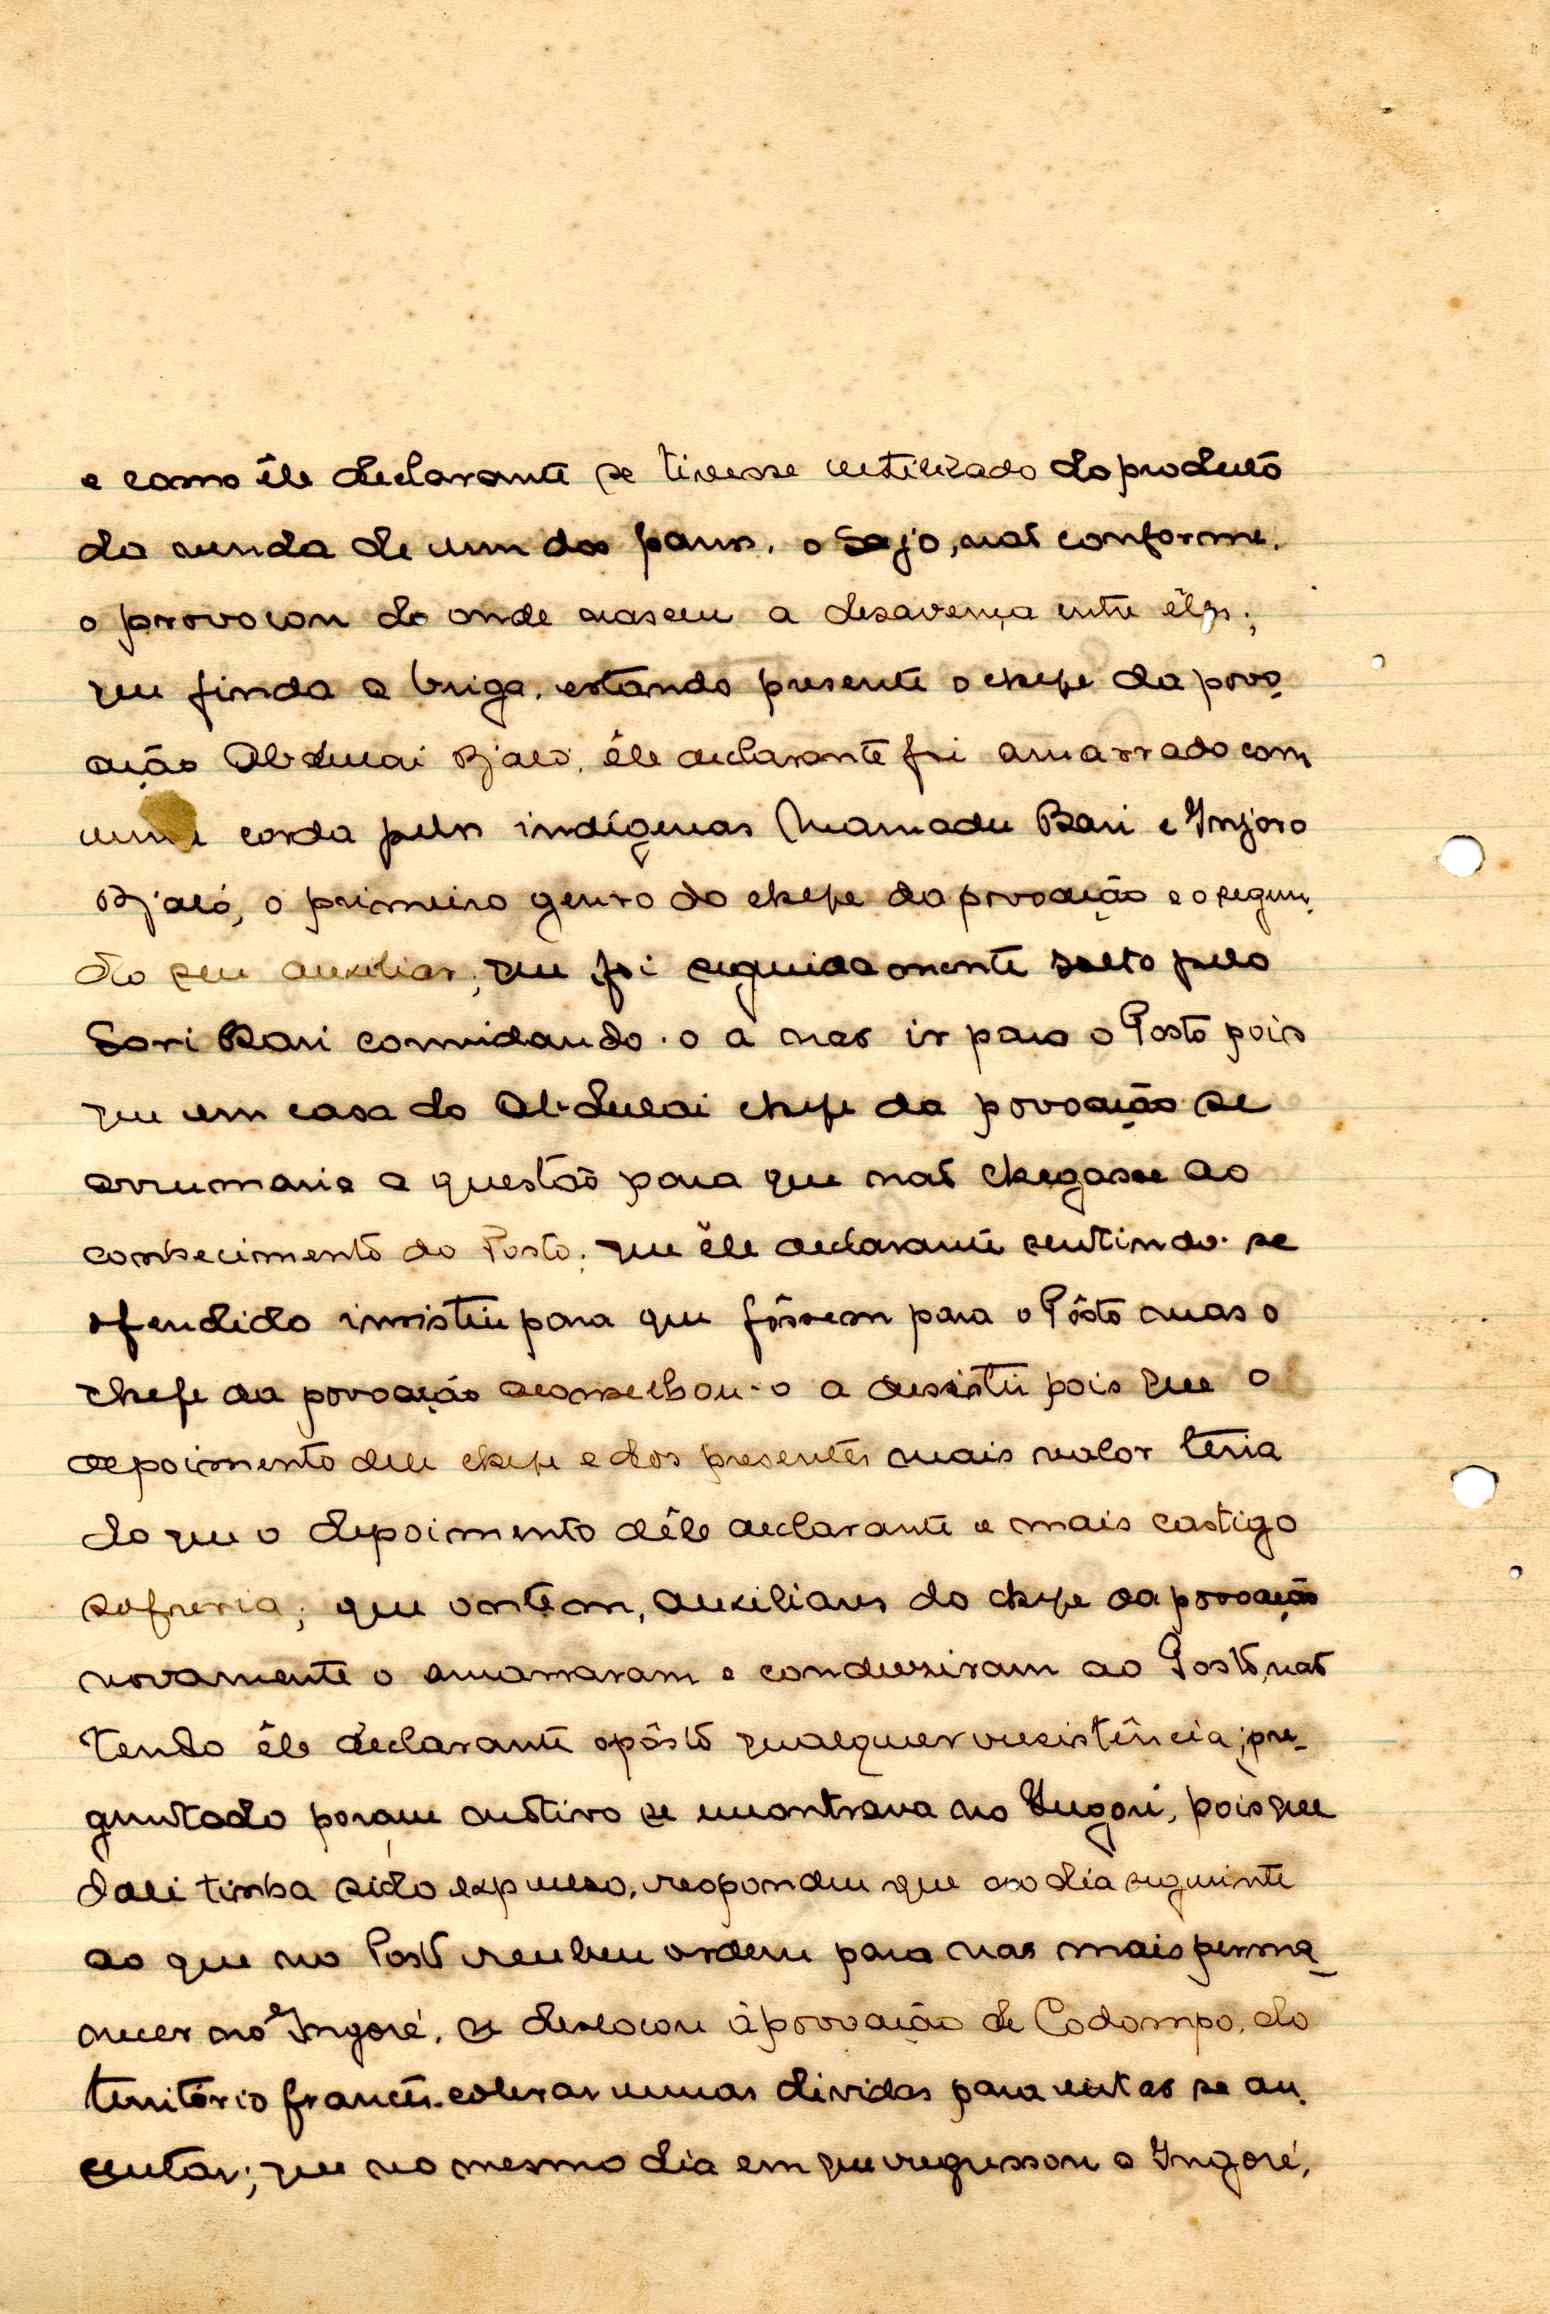 e como êle declarante se tivesse utilizado do produto
da venda de um dos panos, o Sajo, não conforme,
o provocou de onde nasceu a desavença entre êles;
que finda a briga, estando presente o chefe da povo
ação Abdulai Bjaló, êle declarante foi amarrado com
uma corda pelos indígenas Mamadu Bari e Injoro
Bjaló, o primeiro genro do chefe da povoação e o segun
do seu auxiliar; que foi seguidamente solto pelo
Sori Bari convidando-o a não ir para o Posto pois
que em casa do Abdulai chefe da povoação se
arrumaria a questão para que não chegasse ao
conhecimento do Posto; que êle declarante sentindo-se
ofendido insistiu para que fôssem para o Pôsto mas o
chefe da povoação aconselhou-o a desistir pois que o
depoimento dele chefe e dos presentes mais valor teria
do que o depoimento dêle declarante e mais castigo
sofreria; que ontem, auxiliares do chefe da povoação
novamente o amarraram e conduziram ao Posto, não
tendo êle declarante opôsto qualquer resistência; pre-
guntado porque motivo se encontrava no Ingoré, pois que
dali tinha sido expulso, respondeu que no dia seguinte
ao que no Posto recebeu ordem para não mais perma
necer no Ingoré, se deslocou à povoação de Codompo, do
território francês cobrar umas dividas para então se au
sentar; que no mesmo dia em que regressou a Ingoré,